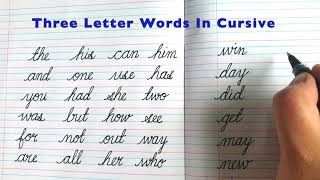 Three Letter Words In Cursive
the his can him
and one use has
you had she two
was but how see
for not out way
are all her who
win
day
did
get
may
new